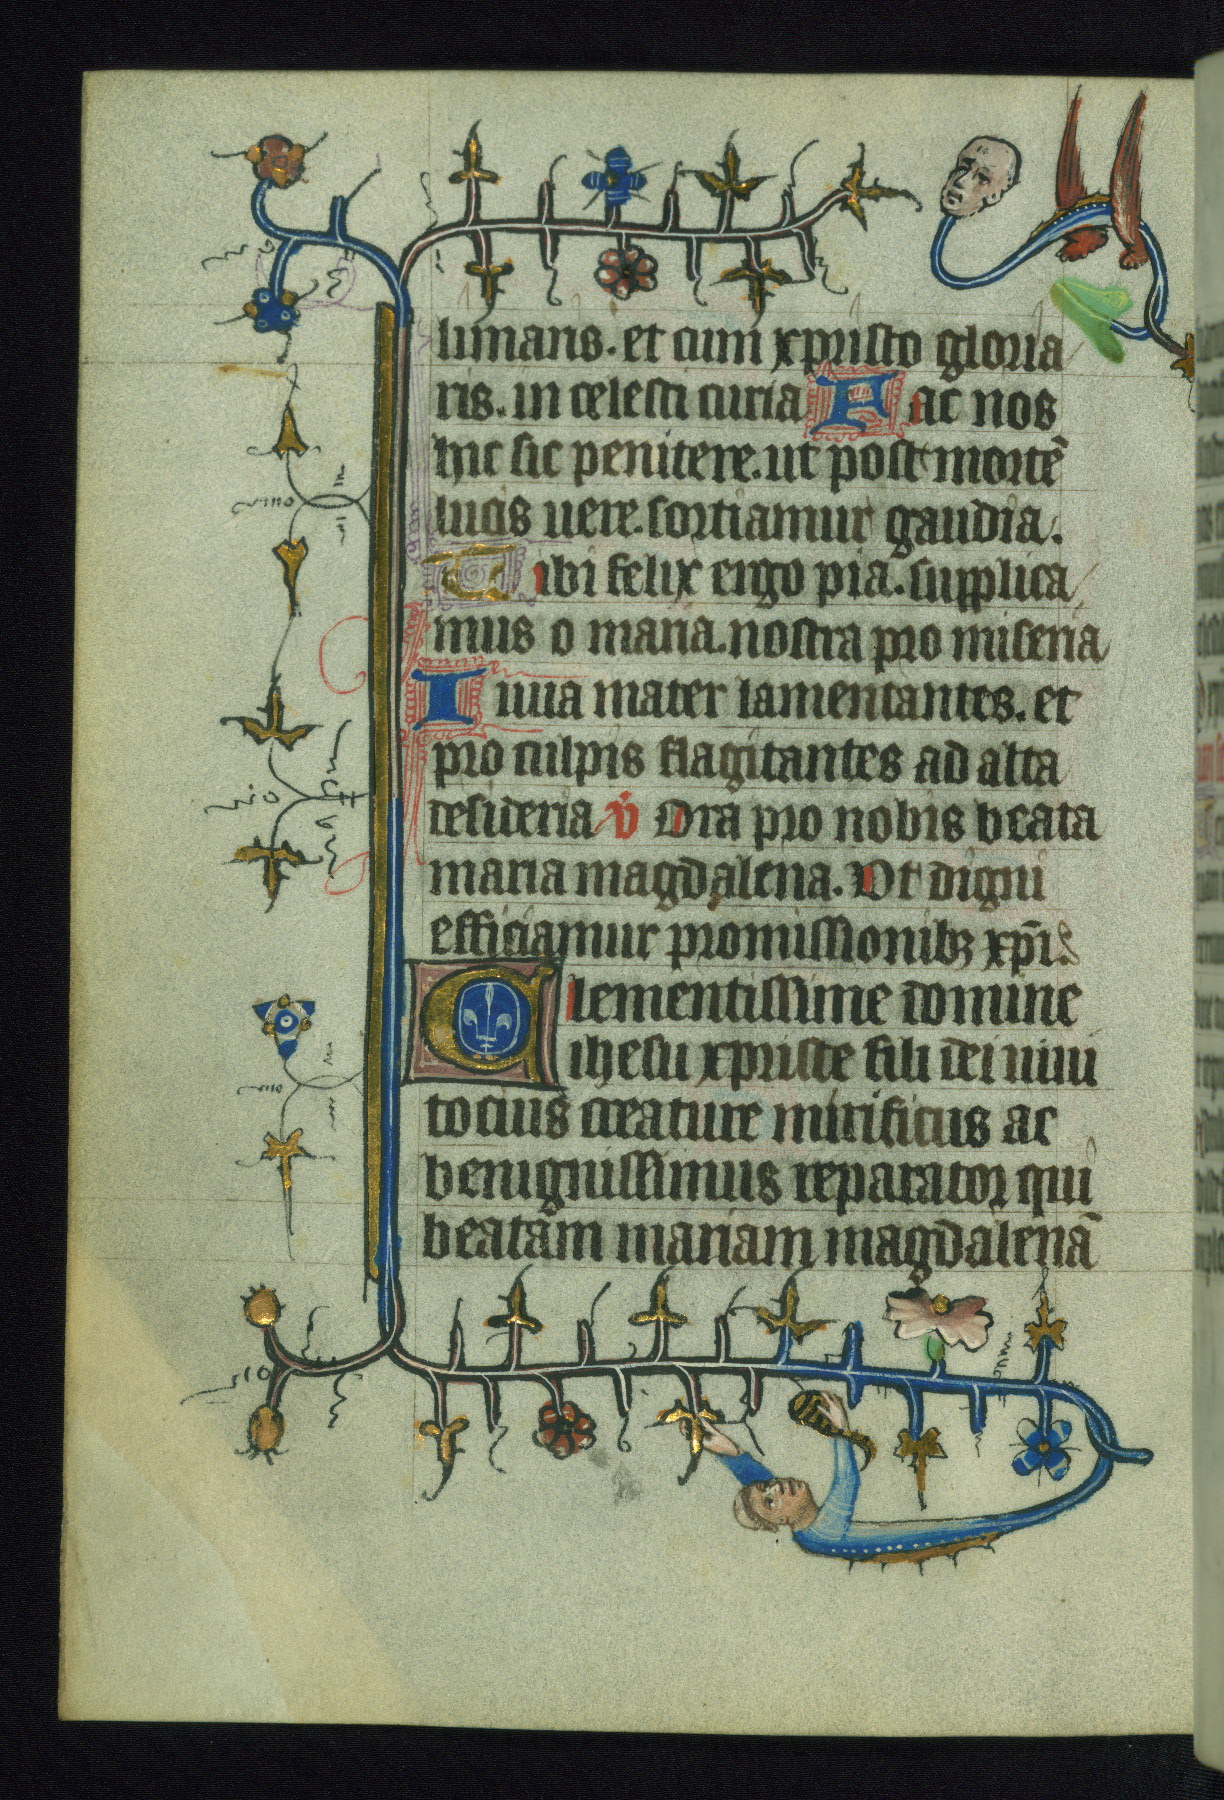 limaris. et cum xpristo gloria
ris. in celesti curia Fac nos
hic sic penitere. ut post mortē
lucis uere. sortiamur gaudia.
Tibi felix ergo pia. supplica
mus o maria. nostra pro miseria
Iuua mater lamentantes. et
pro culpis flagitantes ad alta
desideria v̉ Ora pro nobis beata
maria magdalena. Vt digni
efficiamur promissionibꝫ xp̄i.
Clementissime domine
ihesu xpriste fili dei uiui
tocius creature mirificus ac
benignissimus reparator qui
beatam mariam magdalenā